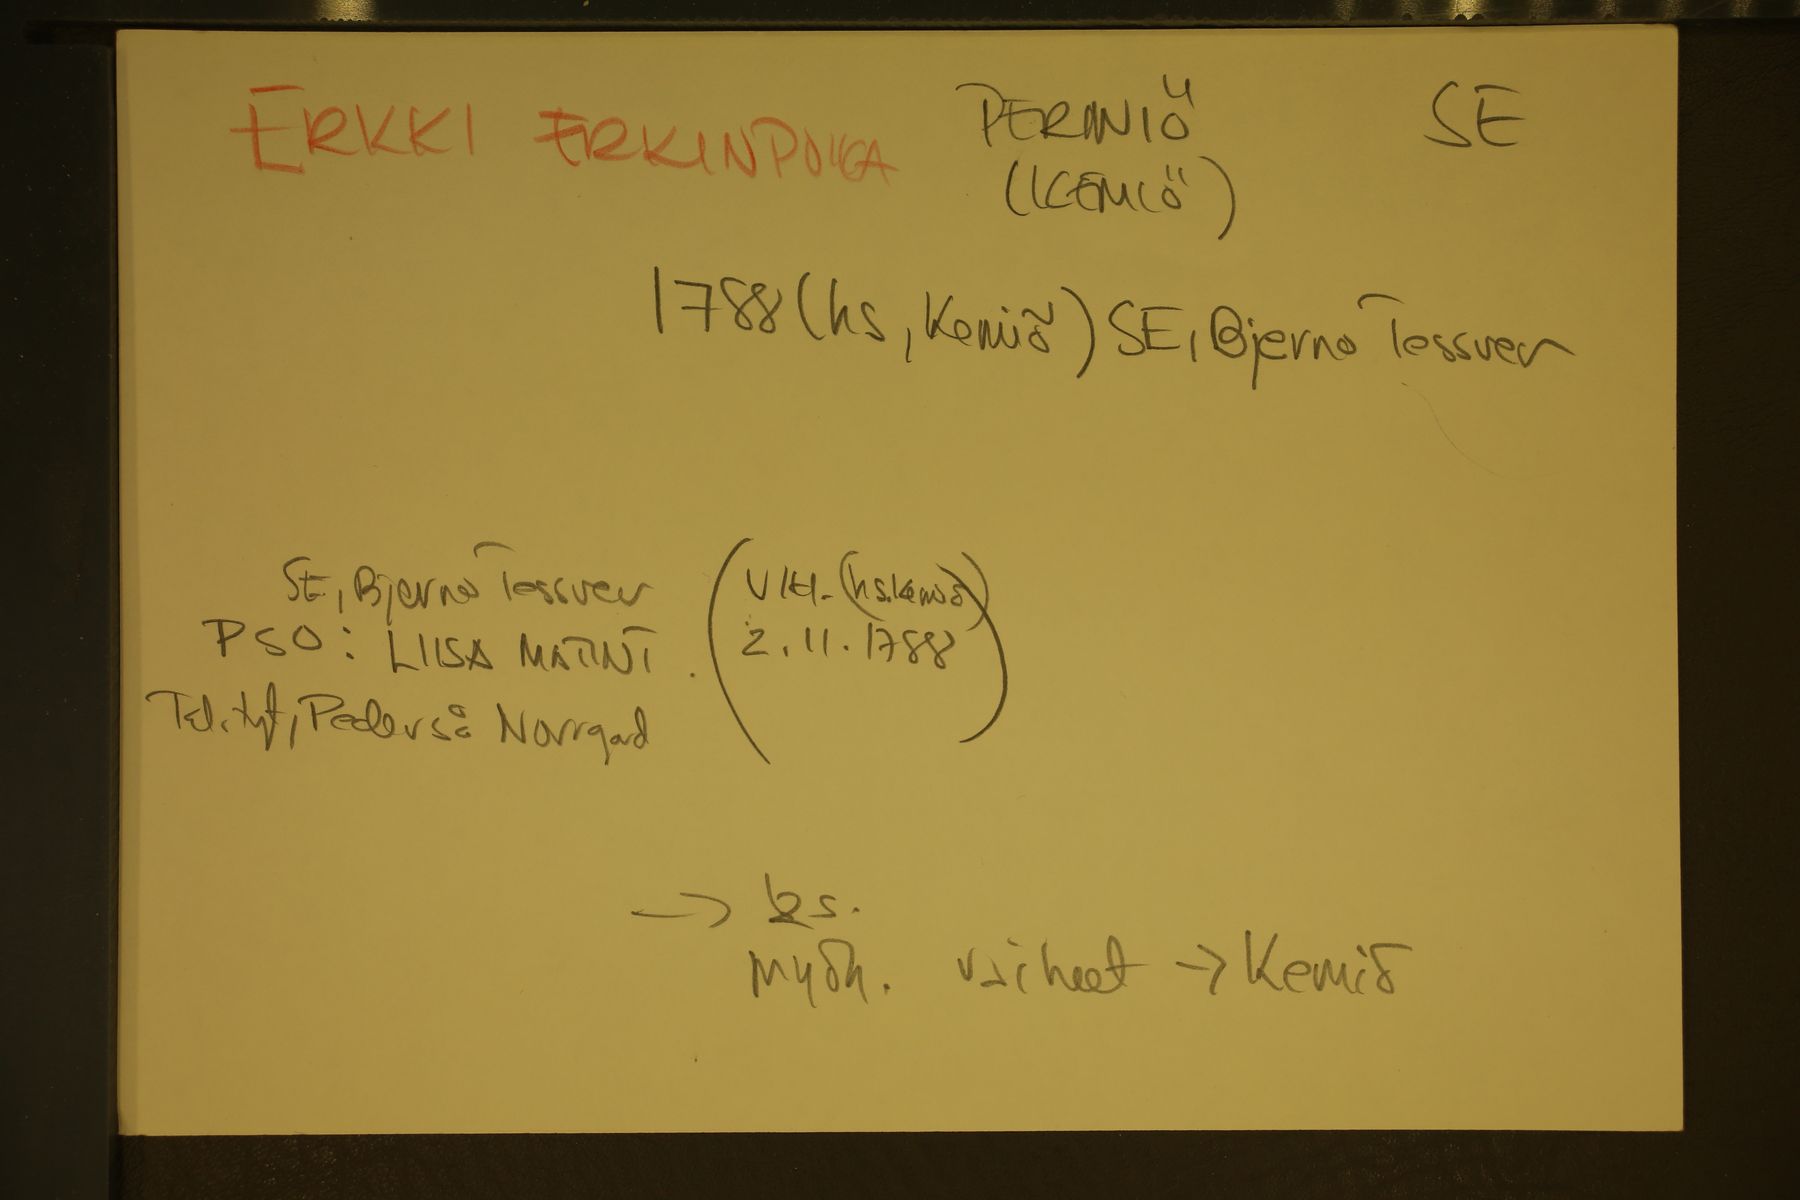 ERKKI ERKINPOIKA PERNIÖ SE
(KEMIÖ)
1788 (hs, Kemiö) SE, Bjerno Tessver
SE, Bjerno Tessver (VIH. (hs. Kemiö)
PSO: LIISA MATINT. 2.11.1788)
Tal. tyt, Pederså Norrgad
→ ks.
myöh. vaiheet → Kemiö